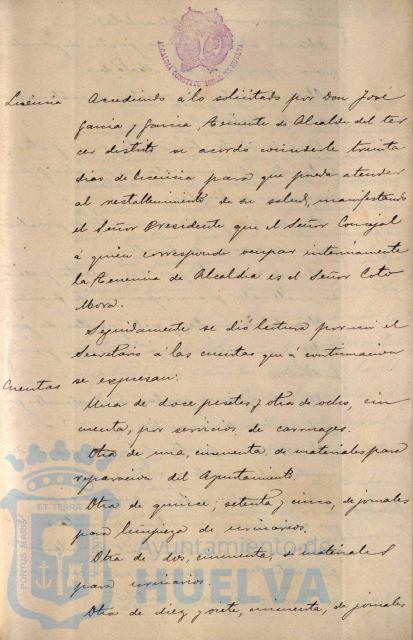 ALCALDIA CONSTITUCIONAL DE HUELVA
Licencia
Accediendo á lo solicitado por Don José
Garcia y Garcia, Teniente de Alcalde del ter
cer distrito se acordó concederle treinta
dias de licencia para que pueda atender
al restablecimiento de su salud, manifestando
el Señor Presidente que el Señor Concejal
á quien corresponde ocupar interinamente
la Tenencia de Alcaldía es el Señor Coto
Mora.
Seguidamente se dió lectura por mi el
Secretario á las cuentas que á continuacion
Cuentas
se expresan:
Una de doce pesetas y otra de ocho, cin
cuenta, por servicios de carruages.
Otra de una, cincuenta, de materiales para
reparacion del Ayuntamiento.
Otra de quince, setenta y cinco, de jornales
para limpieza de urinarios.
Otra de dos, cincuenta, de materiales
para urinarios.
Otra de diez y siete, cincuenta, de jornales
PORTUS MARIS
ET TERRÆ
Ayuntamiento de
HUELVA